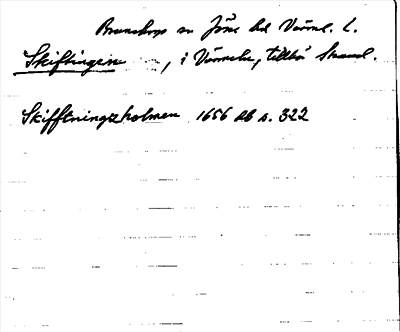 Brunskogs sn Jösse hd Värml. l.
Skiftingen , i Värmeln, tillhö Strand.
Skifftningzholmen 1656 ab s. 322